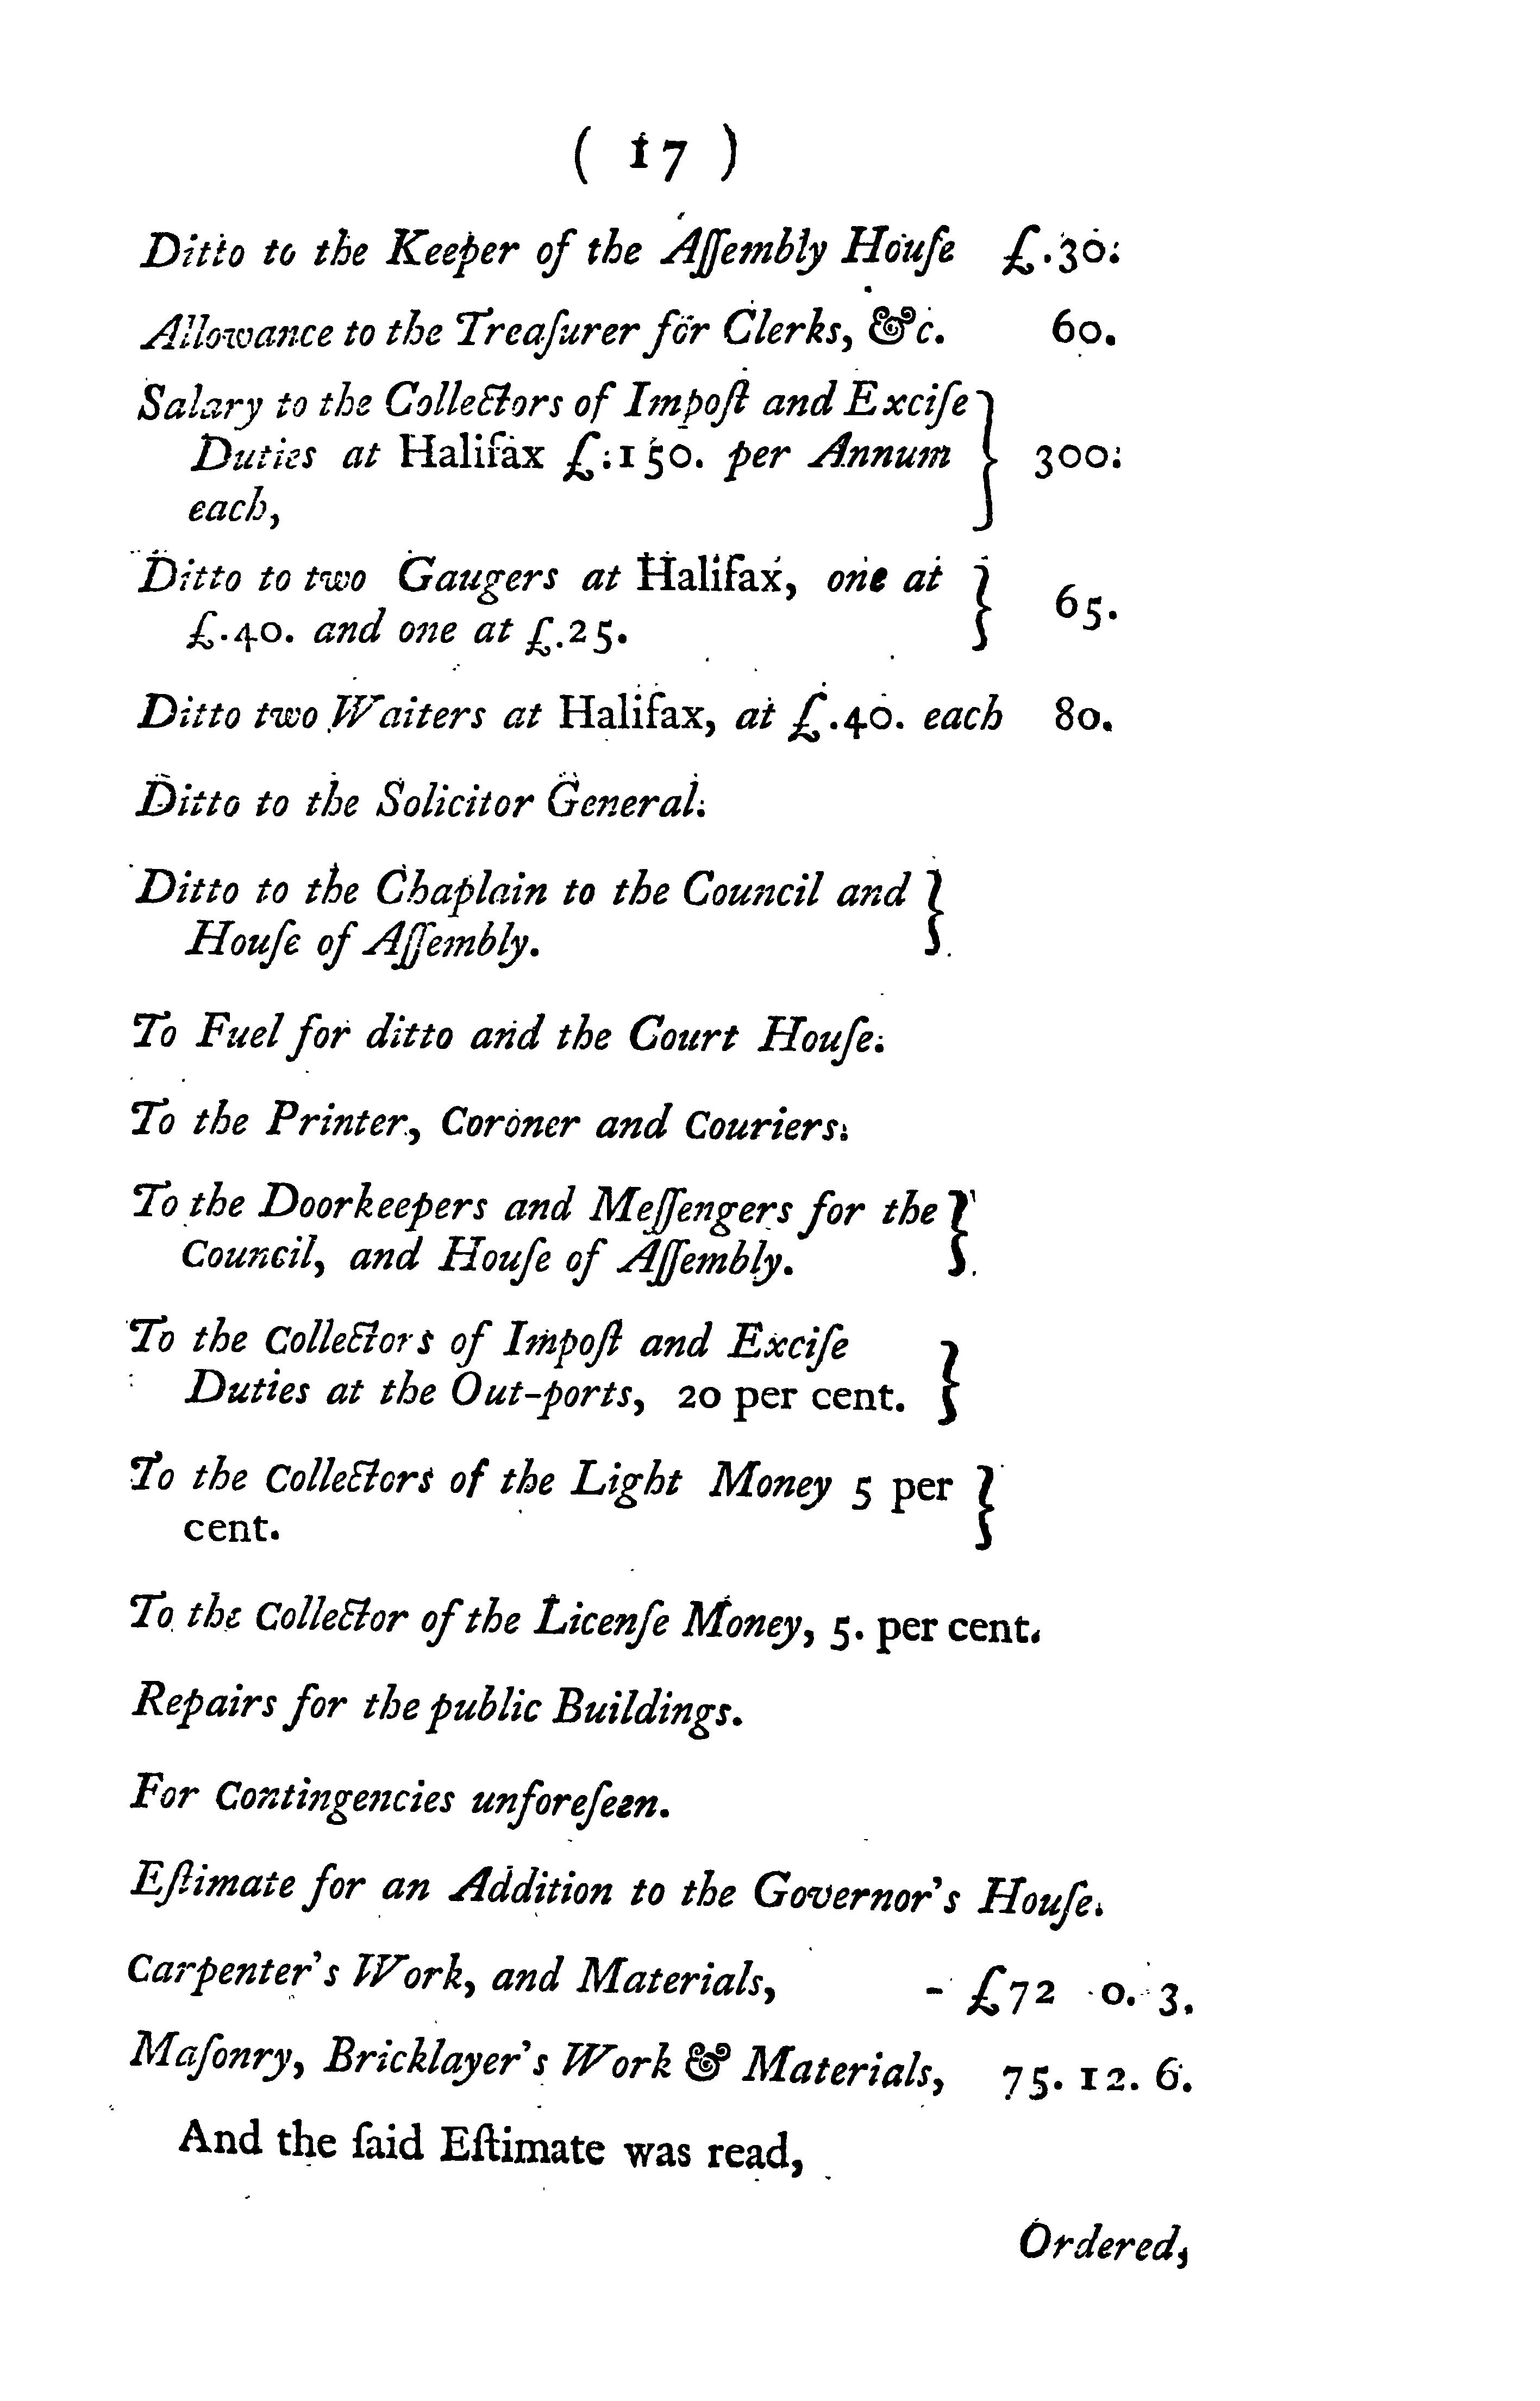 ( 17 )
Ditto to the Keeper of the Aſſembly Houſe £.30.
Allowance to the Treaſurer for Clerks, &c. 60.
Salary to the Collectors of Impoſt and Exciſe
Duties at Halifax £.150. per Annum } 300.
each,
Ditto to two Gaugers at Halifax, one at } 65.
£.40. and one at £.25.
Ditto two Waiters at Halifax, at £.40. each 80.
Ditto to the Solicitor General.
Ditto to the Chaplain to the Council and }
Houſe of Aſſembly.
To Fuel for ditto and the Court Houſe.
To the Printer, Coroner and Couriers.
To the Doorkeepers and Meſſengers for the }
Council, and Houſe of Aſſembly.
To the Collectors of Impoſt and Exciſe }
Duties at the Out-ports, 20 per cent.
To the Collectors of the Light Money 5 per }
cent.
To the Collector of the Licenſe Money, 5. per cent.
Repairs for the public Buildings.
For Contingencies unforeſeen.
Eſtimate for an Addition to the Governor's Houſe.
Carpenter's Work, and Materials, - £72 0. 3.
Maſonry, Bricklayer's Work & Materials, 75. 12. 6.
And the ſaid Eſtimate was read,
Ordered,